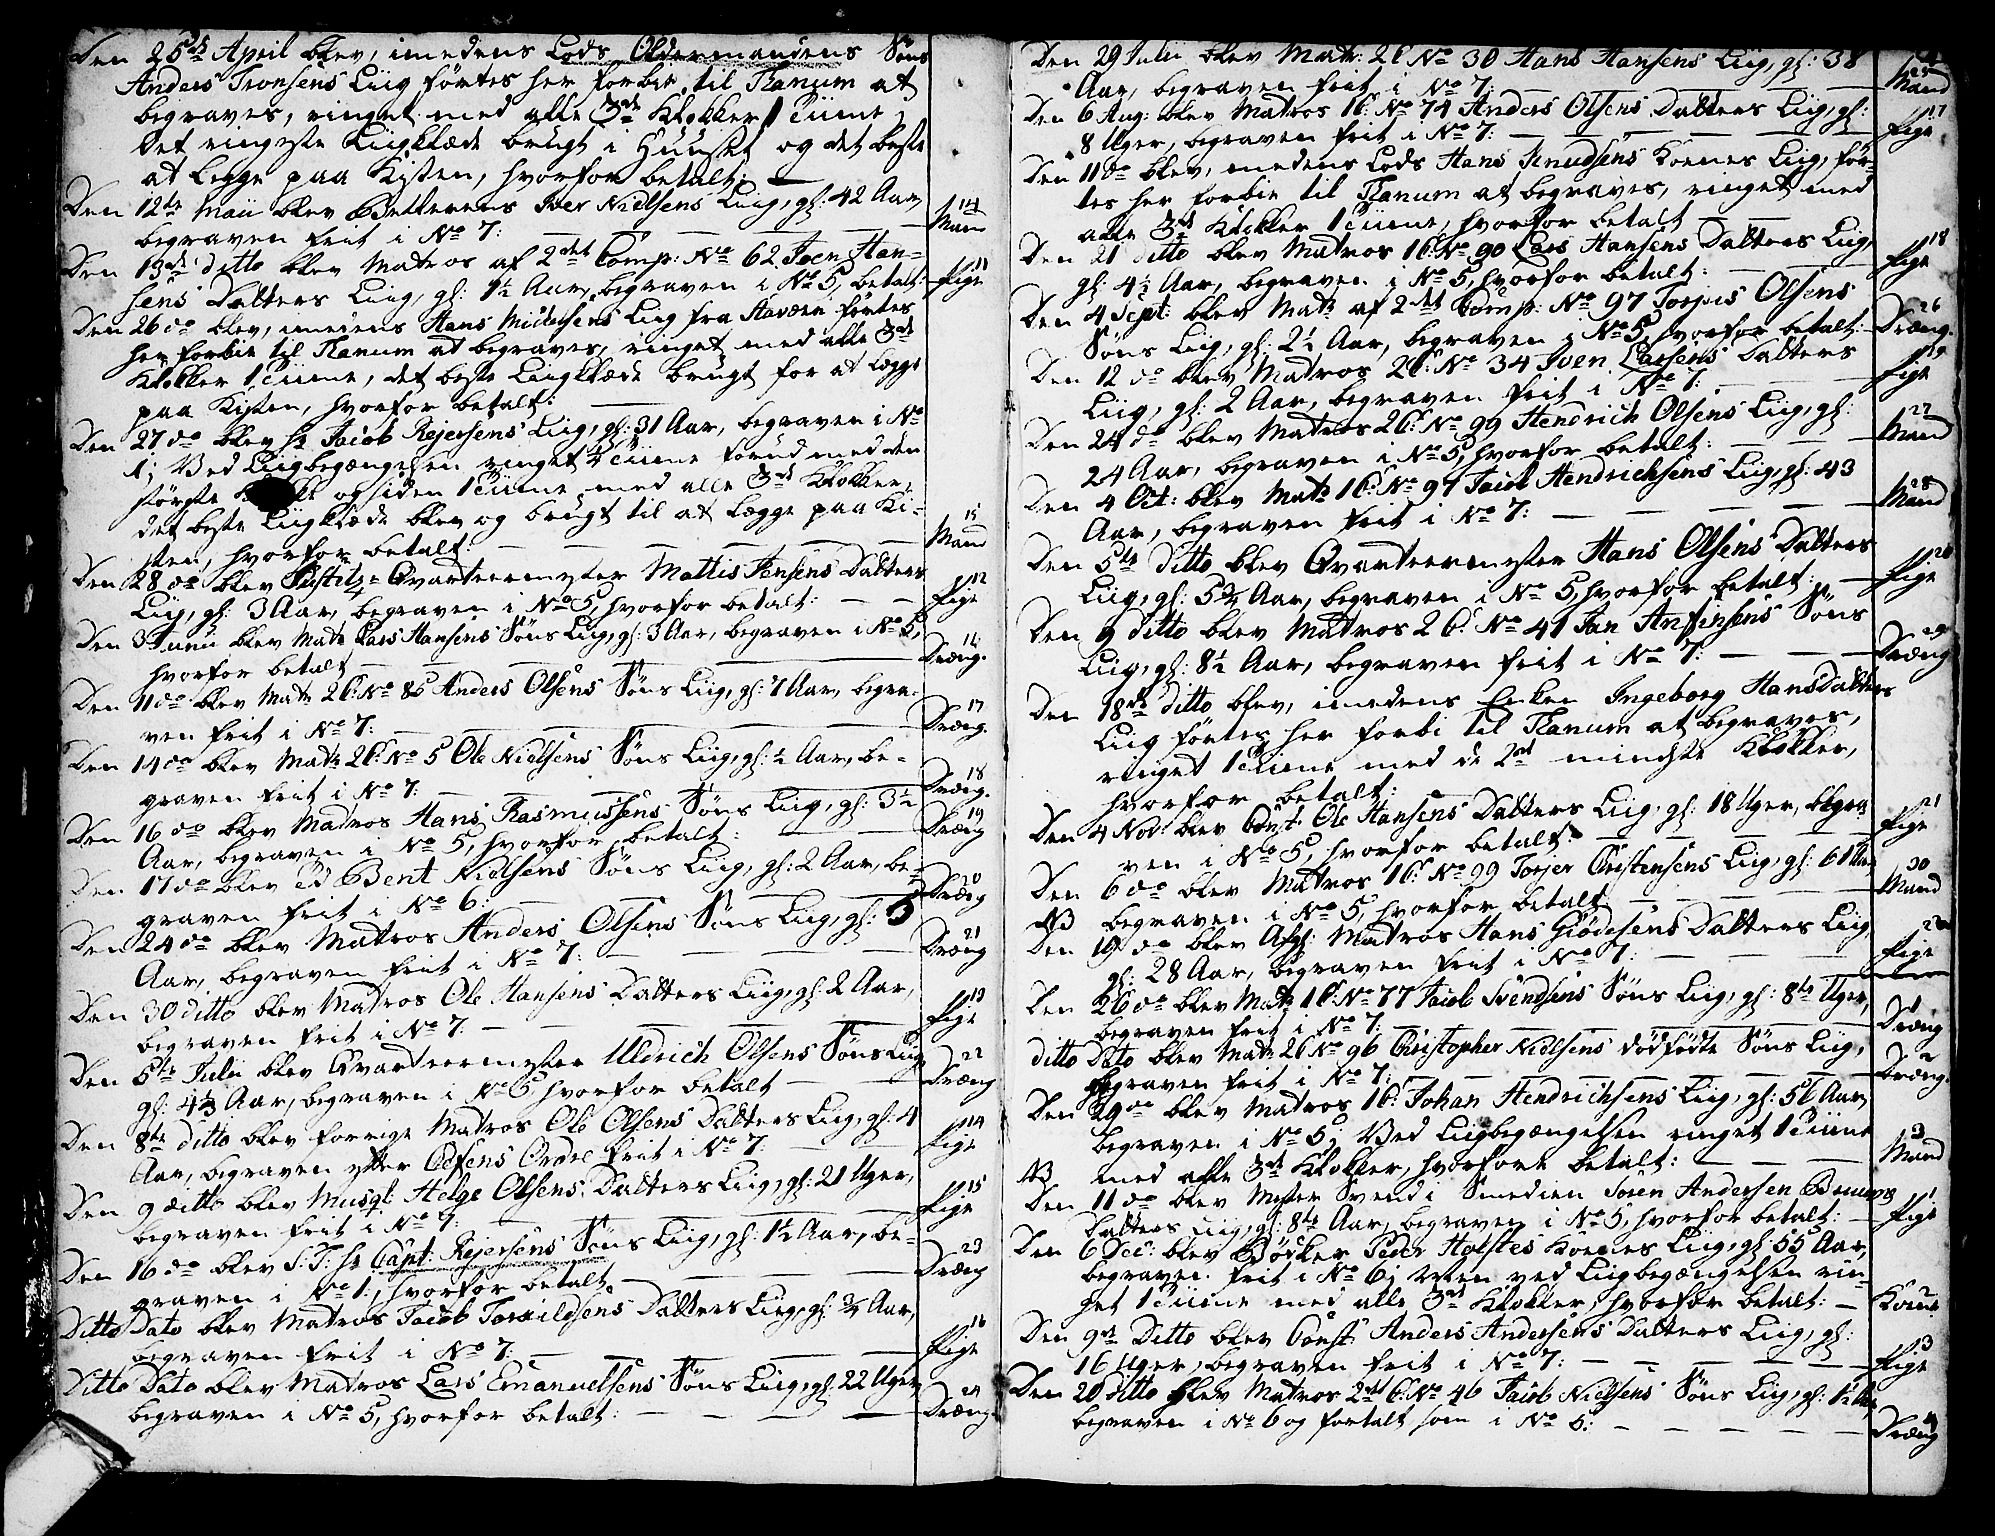 Den 25de April blev, imedens Lods Oldermandens Söns
Anders Tronsens Liig förtes her forbie til Tanum at
begraves, ringet med alle 3de Klokker 1 Tiime,
det ringeste Liigklæde brugt i Huuset og det beste
at legge paa Kisten, hvorfor betalt:
Den 12te Maii blev Betlerens Iver Nielsens Liig, gl: 42 Aar, 14
begraven frit i No 7: Mand
Den 13de ditto blev Matros af 2det Comp: No 62 Joen Han- 11
sens Datters Liig, gl: 1½ Aar, begraven i No 5, betalt: Pige
Den 26 do blev, imedens Hans Liig fra Staværn förtes
her forbie til Tanum at begraves, ringet med alle 3de
Klokker 1 Tiime, det beste Liigklæde brugt for at legge
paa Kisten, hvorfor betalt:
Den 27 do blev Hr Jacob Rejersens Liig, gl: 31 Aar, begraven i No
1; Ved Liigbegængelsen ringet Tiime forud med den
störste og siden 1 Tiime med alle 3de Klokker,
det beste Liigklæde blev og brugt til at legge paa Ki- 15
sten, hvorfor betalt: Mand
Den 28 do blev Justitz-Qvarteermester Mattis Jensens Datters 12
Liig, gl: 3 Aar, begraven i No 5, hvorfor betalt: Pige
Den 3 Junii blev Matr Lars Hansens Söns Liig, gl: 3 Aar, begraven i No 5, 16
hvorfor betalt Dreng.
Den 11 do blev Matr 2 C: No 85 Anders Olsens Söns Liig, gl: 7 Aar, begra- 17
ven frit i No 7: Dreng.
Den 14 do blev Matr 2 C: No 5 Ole Nielsens Söns Liig, gl: ½ Aar, be- 18
graven frit i No 7: Dreng.
Den 16 do blev Matros Hans Rasmussens Söns Liig, gl: 3½ 19
Aar, begraven i No 5, hvorfor betalt: Dreng
Den 17 do blev Bent Nielsens Söns Liig, gl: 2 Aar, be- 20
graven frit i No 6: Dreng
Den 24 do blev Matros Anders Olsens Söns Liig, gl: 5 21
Aar, begraven frit i No 7: Dreng
Den 30 ditto blev Matros Ole Hansens Datters Liig, gl: 2 Aar, 13
begraven frit i No 7: Pige
Den 5te Julii blev Qvarteermester Uldrich Olsens Söns Liig 22
gl: Aar, begraven i No 5 hvorfor betalt Dreng
Den 8te ditto blev forrige Matros Ole Olsens Datters Liig, gl: 4 14
Aar, begraven efter Ordre frit i No 7: Pige
Den 9 ditto blev Musqt: Helge Olsens Datters Liig, gl: 21 Uger, 15
begraven frit i No 7: Pige
Den 16 do blev S:T: Hr Capt: Rejersens Söns Liig, gl: 1½ Aar, be- 23
graven i No 1:, hvorfor betalt Dreng
Ditto Dato blev Matros Jacob Torvildsens Datters Liig, gl: ¾ Aar, 16
begraven frit i No 7: Pige
Ditto Dato blev Matros Lars Emanuelsens Söns Liig, gl: 22 Uger, 24
begraven i No 5, hvorfor betalt: Dreng
Den 29 Julii blev Matr: 2 C No 30 Hans Hansens Liig, gl: 38 25
Aar, begraven frit i No 7: Mand
Den 6 Aug: blev Matros 1 C: No 74 Anders Olsens Datters Liig, gl: 17
8 Uger, begraven frit i No 7: Pige
Den 11 do blev, imedens Lods Hans Knudsens Koenes Liig, för-
tes her forbie til Tanum at begraves, ringet med
alle 3de Klokker 1 Tiime, hvorfor betalt
Den 21 ditto blev Matros 1 C: No 90 Lars Hansens Datters Liig, 18
gl: 4½ Aar, begraven i No 5, hvorfor betalt: Pige
Den 4 Sept: blev Matr af 2det Comp: No 97 Torjus Olsens 26
Söns Liig, gl: 2½ Aar, begraven i No 5, hvorfor betalt: Dreng.
Den 12 do blev Matros 2 C: No 34 Iven Larsens Datters 19
Liig, gl: 2 Aar, begraven frit i No 7: Pige
Den 24 do blev Matros 2 C: No 99 Hendrich Olsens Liig, gl: 27
24 Aar, begraven i No 5, hvorfor betalt: Mand
Den 4 Oct: blev Matr 1 C: No 97 Jacob Hendrichsens Liig, gl: 43 28
Aar, begraven frit i No 7: Mand
Den 5te Ditto blev Qvarteermester Hans Olsens Datters 20
Liig, gl: 5¾ Aar, begraven i No 5, hvorfor betalt: Pige
Den 9 ditto blev Matros 2 C: No 41 Jan Anfinsens Söns 29
Liig, gl: 8½ Aar, begraven frit i No 7: Dreng
Den 18de ditto blev, imedens Enken Ingeborg Hansdatters
Liig förtes her forbi til Tanum at begraves,
ringet 1 Tiime med de 2de mindste Klokker,
hvorfor betalt:
Den 4 Nov: blev Const: Ole Hansens Datters Liig, gl: 18 Uger, begra- 21
ven i No 5, hvorfor betalt: Pige
Den 6 do blev Matros 1 C: No 99 Torjer Christensens Liig, gl: 61 Aar, 30
NB begraven i No 5, hvorfor betalt Mand
Den 19 do blev Afgl: Matros Hans Giödesens Datters Liig, 22
gl: 28 Aar, begraven frit i No 7: Pige
Den 26 do blev Matr 1 C: No 77 Jacob Svendsens Söns Liig, gl: 8te Uger, 1
begraven frit i No 7: Dreng
ditto Dato blev Matr 2 C No 96 Christopher Nielsens dödfödte Söns Liig, 2
begraven frit i No 7: Dreng.
Den 29 do blev Matros 1 C: Johan Hendrichsens Liig, gl: 56 Aar,
begraven i No 5; Ved Liigbegængelsen ringet 1 Tiime 3
NB med alle 3de Klokker, hvorfore betalt: Mand
Den 11 do blev Mester Svend i Smedien Sören Andersen Bruuns 1
Datters Liig, gl: 8te Aar, begraven i No 5, hvorfor betalt: Pige
Den 6 Dec: blev Bödker Peder Holstes Koenes Liig, gl: 55 Aar,
begraven frit i No 6; Men ved Liigbegængelsen rin-
get 1 Tiime med alle 3de Klokker, hvorfor betalt: Koene
Den 9de Ditto blev Const: Anders Andersens Datters Liig, gl: 3
16 Uger, begraven frit i No 7: Pige
Den 20 ditto blev Matros 2det C: No 46 Jacob Nielsens Söns Liig, gl: 1½ Aar, 4
begraven i No 6 og fortalt som i No 5: Dreng